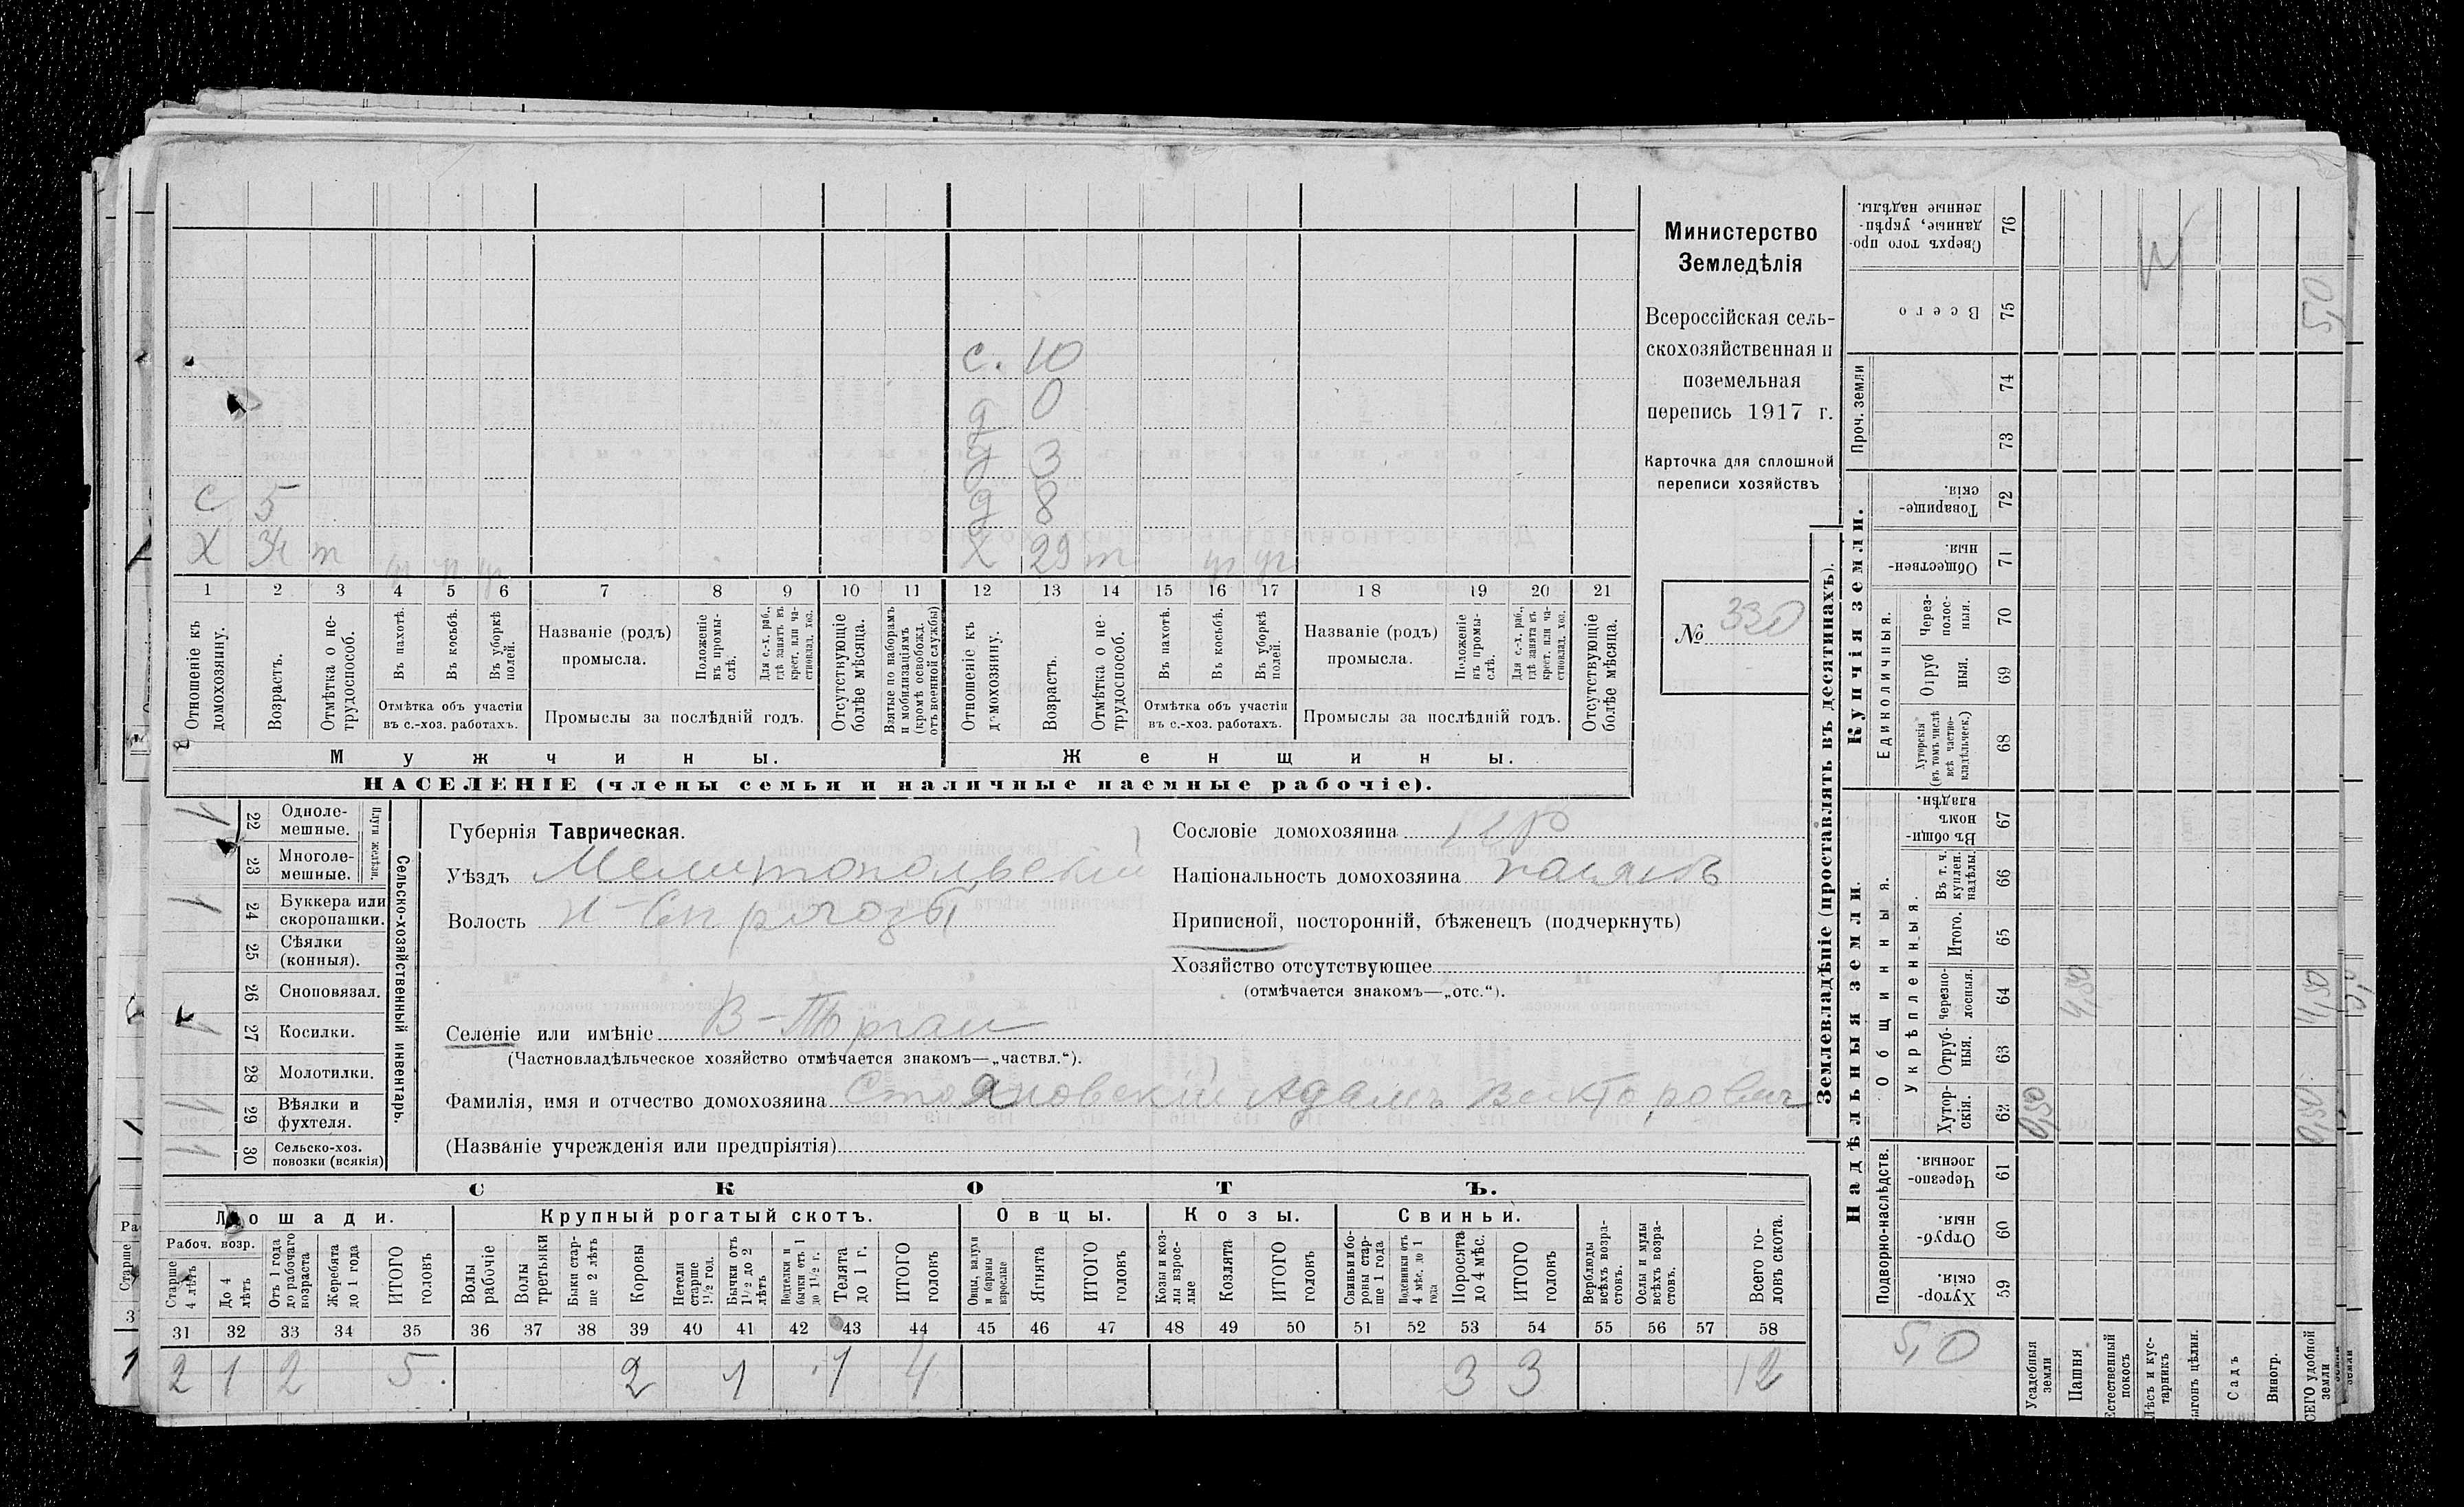 с. 10
д 0
д 3
с 5 д 8
Х 34 т Х 29 т
1 2 3 4 5 6 7 8 9 10 11 12 13 14 15 16 17 18 19 20 21
Отношеніе къ домохозяину.
Возрастъ.
Отмѣтка о не-
трудоспособ.
Въ пахотѣ.
Въ косьбѣ.
Въ уборкѣ
полей.
Отмѣтка объ участіи
въ с.-хоз. работахъ.
Названіе (родъ)
промысла.
Положеніе
въ промы-
слѣ.
Для с.-х. раб.,
гдѣ занятъ въ
крест. или ча-
стновлад. хоз.
Промыслы за послѣдній годъ.
Отсутствующіе
болѣе мѣсяца.
Взятые по наборамъ
и мобилизаціямъ
(кромѣ освобожд.
отъ военной службы)
Отношеніе къ
домохозяину.
Возрастъ.
Отмѣтка о не-
трудоспособ.
Въ пахотѣ.
Въ косьбѣ.
Въ уборкѣ
полей.
Отмѣтка объ участіи
въ с.-хоз. работахъ.
Названіе (родъ)
промысла.
Положеніе
въ промы-
слѣ.
Для с.-х. раб.,
гдѣ занята въ
крест. или ча-
стновлад. хоз.
Промыслы за послѣдній годъ.
Отсутствующіе
болѣе мѣсяца.
Мужчины. Женщины.
НАСЕЛЕНІЕ (члены семьи и наличные наемные рабочіе).
Министерство
Земледѣлія
Всероссійская сель-
скохозяйственная и
поземельная
перепись 1917 г.
Карточка для сплошной
переписи хозяйствъ
№ 330
1 22 Одноле-
мешные.
23 Многоле-
мешные.
Плуги желѣзн.
1 24 Буккера или
скоропашки.
25 Сѣялки
(конныя).
26 Сноповязал.
1 27 Косилки.
28 Молотилки.
1 29 Вѣялки и
фухтеля.
1 30 Сельско-хоз.
повозки (всякія)
Сельско-хозяйственный инвентарь.
Губернія Таврическая.
Уѣздъ Мелитопольскій
Волость Н-Сирогозы
Селеніе или имѣніе В-Торгаи
(Частновладѣльческое хозяйство отмѣчается знакомъ—„частвл.“).
Фамилія, имя и отчество домохозяина Стояновскій Адамъ Викторович
(Названіе учрежденія или предпріятія)
Сословіе домохозяина кр
Національность домохозяина полякъ
Приписной, посторонній, бѣженецъ (подчеркнуть)
Хозяйство отсутствующее
(отмѣчается знакомъ—„отс.“).
СКОТЪ.
Лошади. Крупный рогатый скотъ. Овцы. Козы. Свиньи.
Рабоч. возр.
Старше
4 лѣтъ
До 4
лѣтъ
Отъ 1 года
до рабочаго
возраста
Жеребята
до 1 года
ИТОГО
головъ
Волы
рабочіе
Волы
третьяки
Быки стар-
ше 2 лѣтъ
Коровы
Нетели
старше
1½ год.
Бычки отъ
1½ до 2
лѣтъ
Подтелки и
бычки отъ 1
до 1½ г.
Телята
до 1 г.
ИТОГО
головъ
Овцы, валухи
и бараны
взрослые
Ягнята
ИТОГО
головъ
Козы и коз-
лы взрос-
лые
Козлята
ИТОГО
головъ
Свиньи и бо-
ровы стар-
ше 1 года
Подсвинки отъ
4 мѣс. до 1
года
Поросята
до 4 мѣс.
ИТОГО
головъ
Верблюды
всѣхъ возра-
стовъ.
Ослы и мулы
всѣхъ возра-
стовъ.
Всего го-
ловъ скота.
31 32 33 34 35 36 37 38 39 40 41 42 43 44 45 46 47 48 49 50 51 52 53 54 55 56 57 58
2 1 2 5. 2 1 1 4 3 3 12
Землевладѣніе (проставлять въ десятинахъ).
Сверхъ того про-
данные, укрѣп-
ленные надѣлы.
76
Всего
75
5,0
Проч. земли
74
73
Купчія земли.
Товарище-
скія.
72
Обществен-
ныя.
71
Единоличныя.
Через-
полос-
ныя.
70
Отруб
ныя.
69
Хуторскія
(въ томъ числѣ
всѣ частно-
владѣльческ.)
68
Надѣльныя земли.
Общинныя.
Въ общи-
номъ
владѣн.
67
Укрѣпленныя.
Въ т. ч.
куплен.
надѣлы.
66
Итого.
65
Черезпо-
лосныя.
64
4,50 4,50
Отруб-
ныя.
63
Хутор-
скія.
62
0,50 0,50
Подворно-наслѣдств.
Черезпо-
лосныя.
61
Отруб-
ныя.
60
Хутор-
скія.
59
5,0
Усадебныя
земли
Пашня
Естественный
покосъ
Лѣсъ и кус-
тарникъ
Выгонъ цѣлин.
Садъ
Виногр.
ВСЕГО удобной
земли